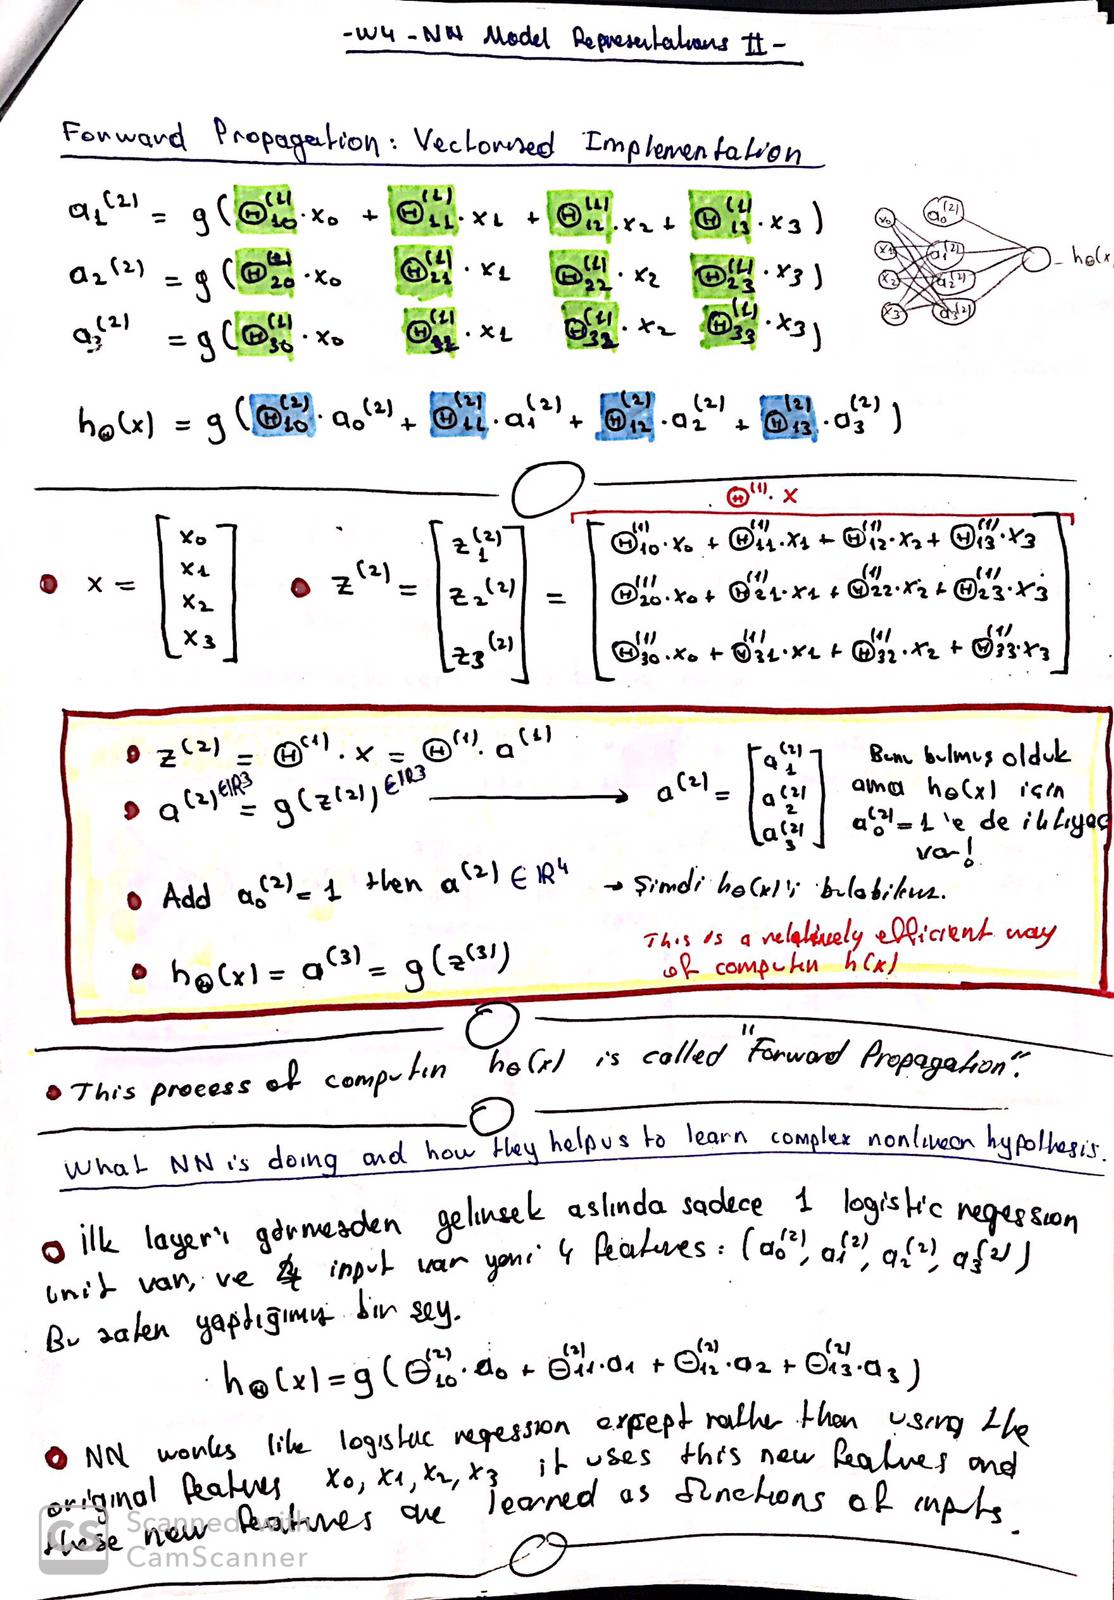 -W4-NN Model Representations II-
Forward Propagation: Vectorized Implementation
a₁⁽²⁾ = g(Θ₁₀⁽¹⁾·x₀ + Θ₁₁⁽¹⁾·x₁ + Θ₁₂⁽¹⁾·x₂ + Θ₁₃⁽¹⁾·x₃)
a₂⁽²⁾ = g(Θ₂₀⁽¹⁾·x₀ Θ₂₁⁽¹⁾·x₁ Θ₂₂⁽¹⁾·x₂ Θ₂₃⁽¹⁾·x₃)
a₃⁽²⁾ = g(Θ₃₀⁽¹⁾·x₀ Θ₃₂⁽¹⁾·x₁ Θ₃₂⁽¹⁾·x₂ Θ₃₃⁽¹⁾·x₃)
x₀ x₁ x₂ x₃ a₀⁽²⁾ a₁⁽²⁾ a₂⁽²⁾ a₃⁽²⁾ hΘ(x
hΘ(x) = g(Θ₁₀⁽²⁾·a₀⁽²⁾ + Θ₁₁⁽²⁾·a₁⁽²⁾ + Θ₁₂⁽²⁾·a₂⁽²⁾ + Θ₁₃⁽²⁾·a₃⁽²⁾)
Θ⁽¹⁾·x
x = [x₀ x₁ x₂ x₃] z⁽²⁾ = [z₁⁽²⁾ z₂⁽²⁾ z₃⁽²⁾] =
Θ₁₀⁽¹⁾·x₀ + Θ₁₁⁽¹⁾·x₁ + Θ₁₂⁽¹⁾·x₂ + Θ₁₃⁽¹⁾·x₃
Θ₂₀⁽¹⁾·x₀ + Θ₂₁⁽¹⁾·x₁ + Θ₂₂⁽¹⁾·x₂ + Θ₂₃⁽¹⁾·x₃
Θ₃₀⁽¹⁾·x₀ + Θ₃₁⁽¹⁾·x₁ + Θ₃₂⁽¹⁾·x₂ + Θ₃₃⁽¹⁾·x₃
z⁽²⁾ = Θ⁽¹⁾·x = Θ⁽¹⁾·a⁽¹⁾
a⁽²⁾ ∈ℝ3 = g(z⁽²⁾) ∈ℝ3 → a⁽²⁾ = [a₁⁽²⁾ a₂⁽²⁾ a₃⁽²⁾]
Bunu bulmuş olduk
ama hΘ(x) için
a₀⁽²⁾=1'e de ihtiyaç
var!
Add a₀⁽²⁾=1 then a⁽²⁾ ∈ ℝ⁴ → Şimdi hΘ(x)'i bulabiliriz.
hΘ(x) = a⁽³⁾ = g(z⁽³⁾)
This is a relatively efficient way
of computin h(x)
This process of computin hΘ(x) is called "Forward Propagation".
What NN is doing and how they help us to learn complex nonlinear hypothesis.
İlk layer'ı görmezden gelirsek aslında sadece 1 logistic regression
unit var, ve 4 input var yani 4 features: (a₀⁽²⁾, a₁⁽²⁾, a₂⁽²⁾, a₃⁽²⁾)
Bu zaten yaptığımız bir şey.
hΘ(x) = g(Θ₁₀⁽²⁾·a₀ + Θ₁₁⁽²⁾·a₁ + Θ₁₂⁽²⁾·a₂ + Θ₁₃⁽²⁾·a₃)
NN works like logistic regression except rather than using the
original features x₀, x₁, x₂, x₃ it uses this new features and
these new features are learned as functions of inputs.
CS Scanned with
CamScanner